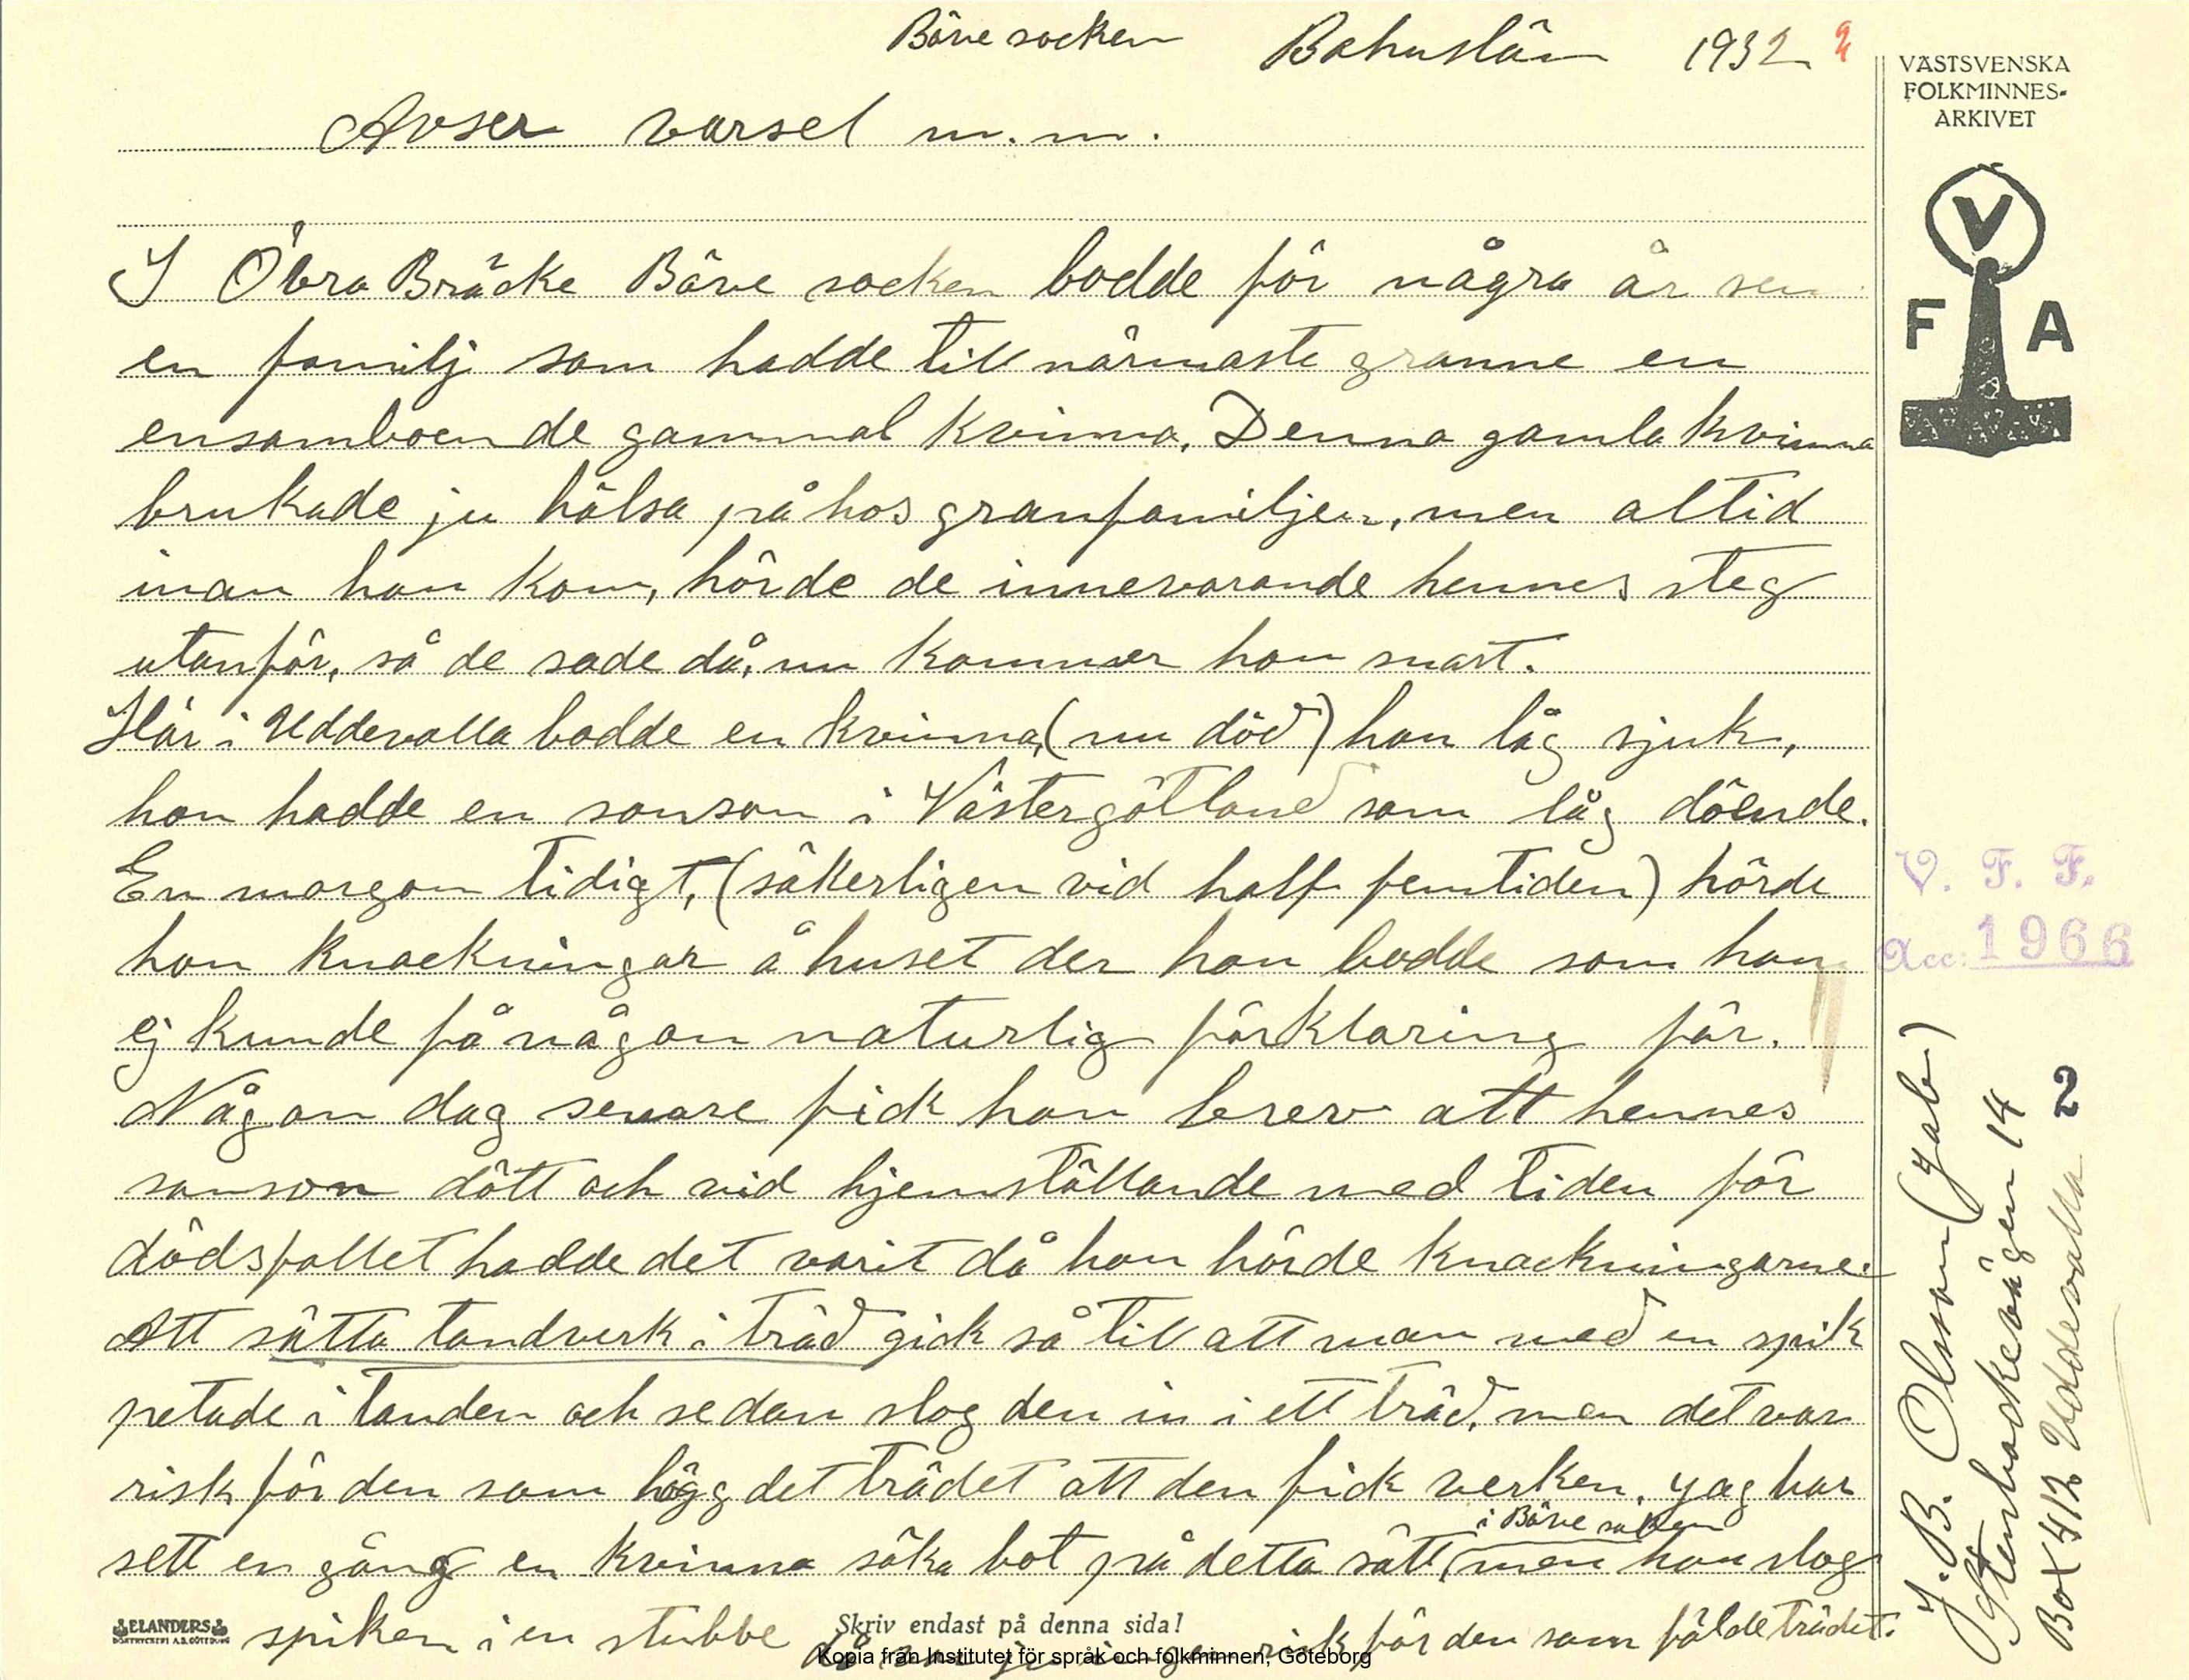 Bäve socken Bohuslän 1932
Avser varsel m.m.
I Övra Bräcke Bäve socken bodde för några år sen
en familj som hadde till närmaste granne en
ensamboende gammal kvinna. Denna gamla kvinna
brukade ju hälsa på hos granfamiljen, men altid
inan hon kom, hörde de innevarande hennes steg
utanför, så de sade då, nu kommer hon snart.
Här i Uddevalla bodde en kvinna, (nu död) hon låg sjuk,
hon hadde en sonson i Västergötland som låg döende.
En morgon tidigt, (säkerligen vid half femtiden) hörde
hon knackningar å huset der hon bodde som hon
ej kunde få någon naturlig förklaring för.
Någon dag senare fick hon brev att hennes
sonson dött och vid hjemställande med tiden för
dödsfallet hadde det varit då hon hörde knackningarne.
Att sätta tandverk i träd gick så till att man med en spik
petade i tanden och sedan slog den in i ett träd, men det var
risk för den som högg det trädet att den fick verken. yag har
i Bäve socken
sett en gång en kvinna söka bot på detta sätt, men hon slog
spiken i en stubbe då var ju ingen risk för den som fälde trädet.
ELANDERS
BOKTRYCKERI A.B. GÖTEBORG
Skriv endast på denna sida!
Kopia från Institutet för språk och folkminnen, Göteborg
VÄSTSVENSKA
FOLKMINNES-
ARKIVET
V
F A
V. F. F.
Acc: 1966
2
J.B. Olsson (Jabe)
Stenbackevägen 14
Box 412 Uddevalla